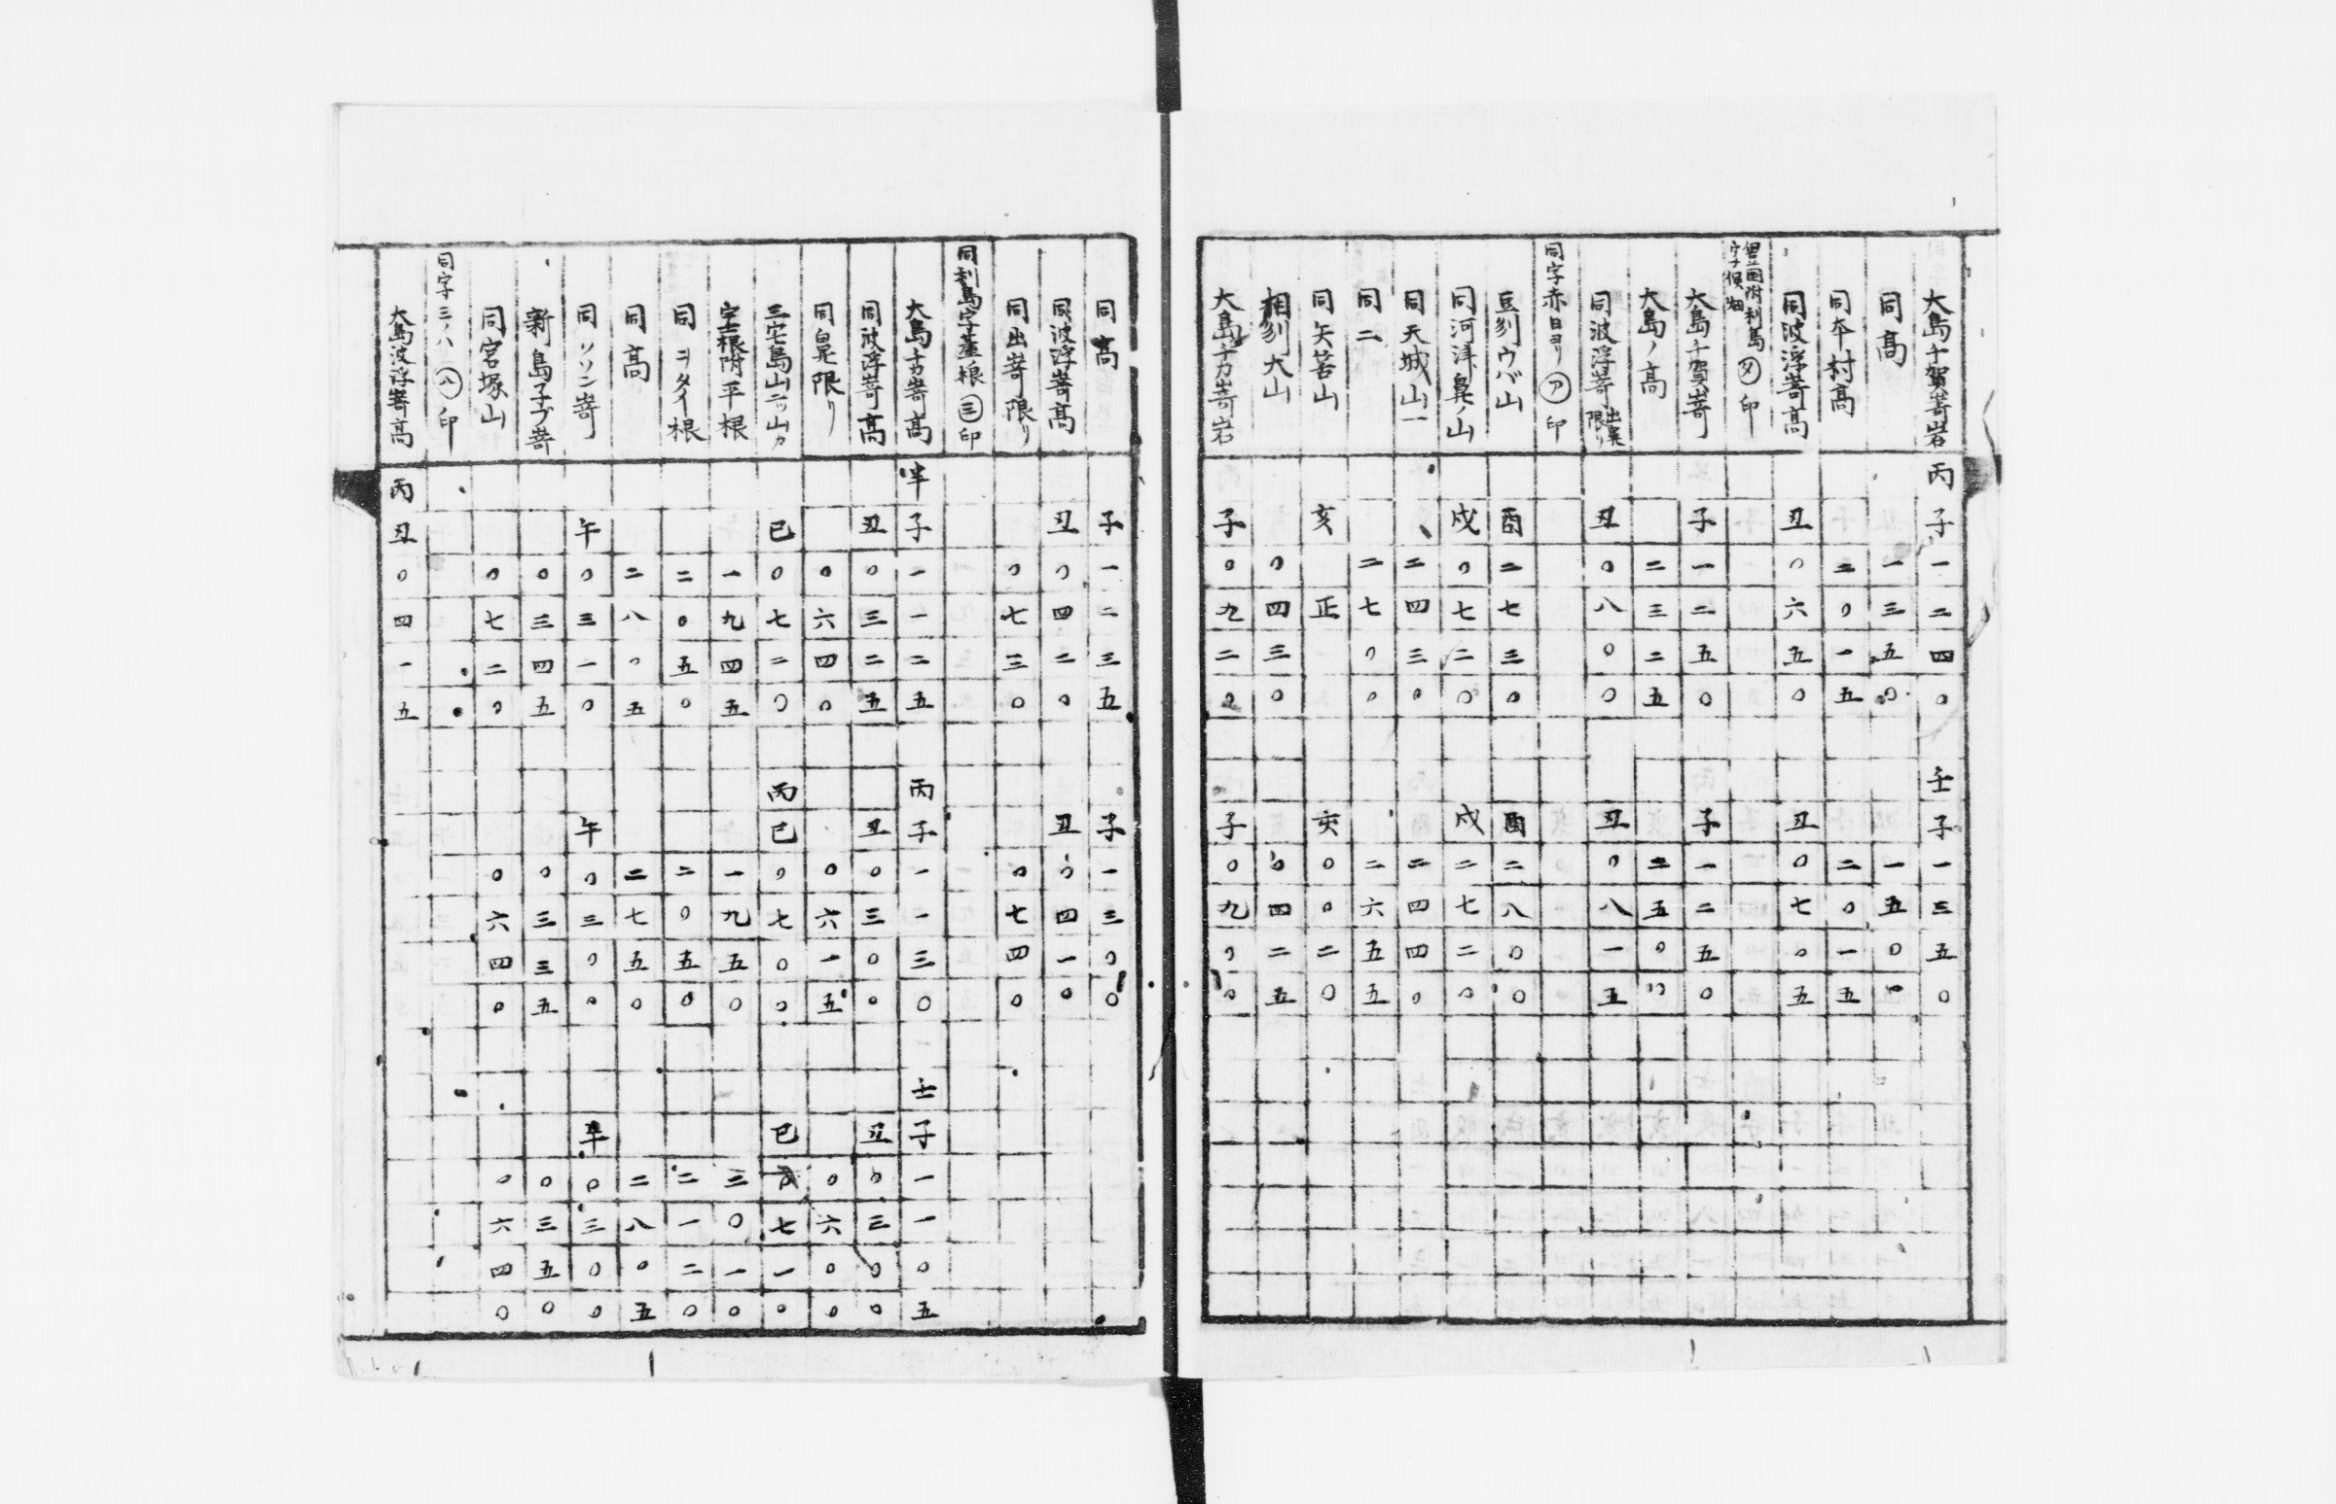 大島十賀嵜岩 丙子一二四〇 壬子一三五〇
同高 一三五〇 一五〇
同本村高 二〇一五 二〇一五
同波浮嵜高 丑〇六五〇 丑〇七〇五
附利島字候畑 ㋟印
大島十賀嵜 子一二五〇 子一二五〇
大島ノ高 二三二五 二五〇
同波浮嵜出鼻限リ 丑〇八〇〇 丑〇八一五
同字赤日ヨリ ㋐印
豆刕ウバ山 酉二七三〇 酉二八〇〇
同河津鼻ノ山 戌〇七二〇 戌二七二〇
同天城山一 二四三〇 二四四〇
同二 二七〇〇 二六五五
同矢筈山 亥正 亥〇〇二〇
相刕大山 〇四三〇 〇四二五
大島十カ嵜岩 子〇九二〇 子〇九〇〇
同高 子一二三五 子一三〇〇
同波浮嵜高 丑〇四二〇 丑〇四一〇
同出嵜限リ 〇七三〇 〇七四〇
同利島字根 ㊂印
大島十カ嵜高 子一一二五 丙子一一三〇 壬子一一〇五
同波浮嵜高 丑〇三二五 丑〇三〇〇 丑〇三〇〇
同限リ 〇六四〇 〇六一五 〇六〇〇
三宅島山ニツ山カ 巳〇七二〇 丙巳〇七〇〇 巳七一〇
根附平根 一九四五 一九五〇 二〇一〇
同ヲタイ根 二〇五〇 二〇五〇 二一二〇
同高 二八〇五 二七五〇 二八〇五
同ソソン嵜 午〇三一〇 午〇三〇〇 午〇三〇〇
新島子ブ嵜 〇三四五 〇三三五 〇三五〇
同宮塚山 〇七二〇 〇六四〇 〇六四〇
同字三ノハ ㋩印
大島波浮嵜高 丙丑〇四一五